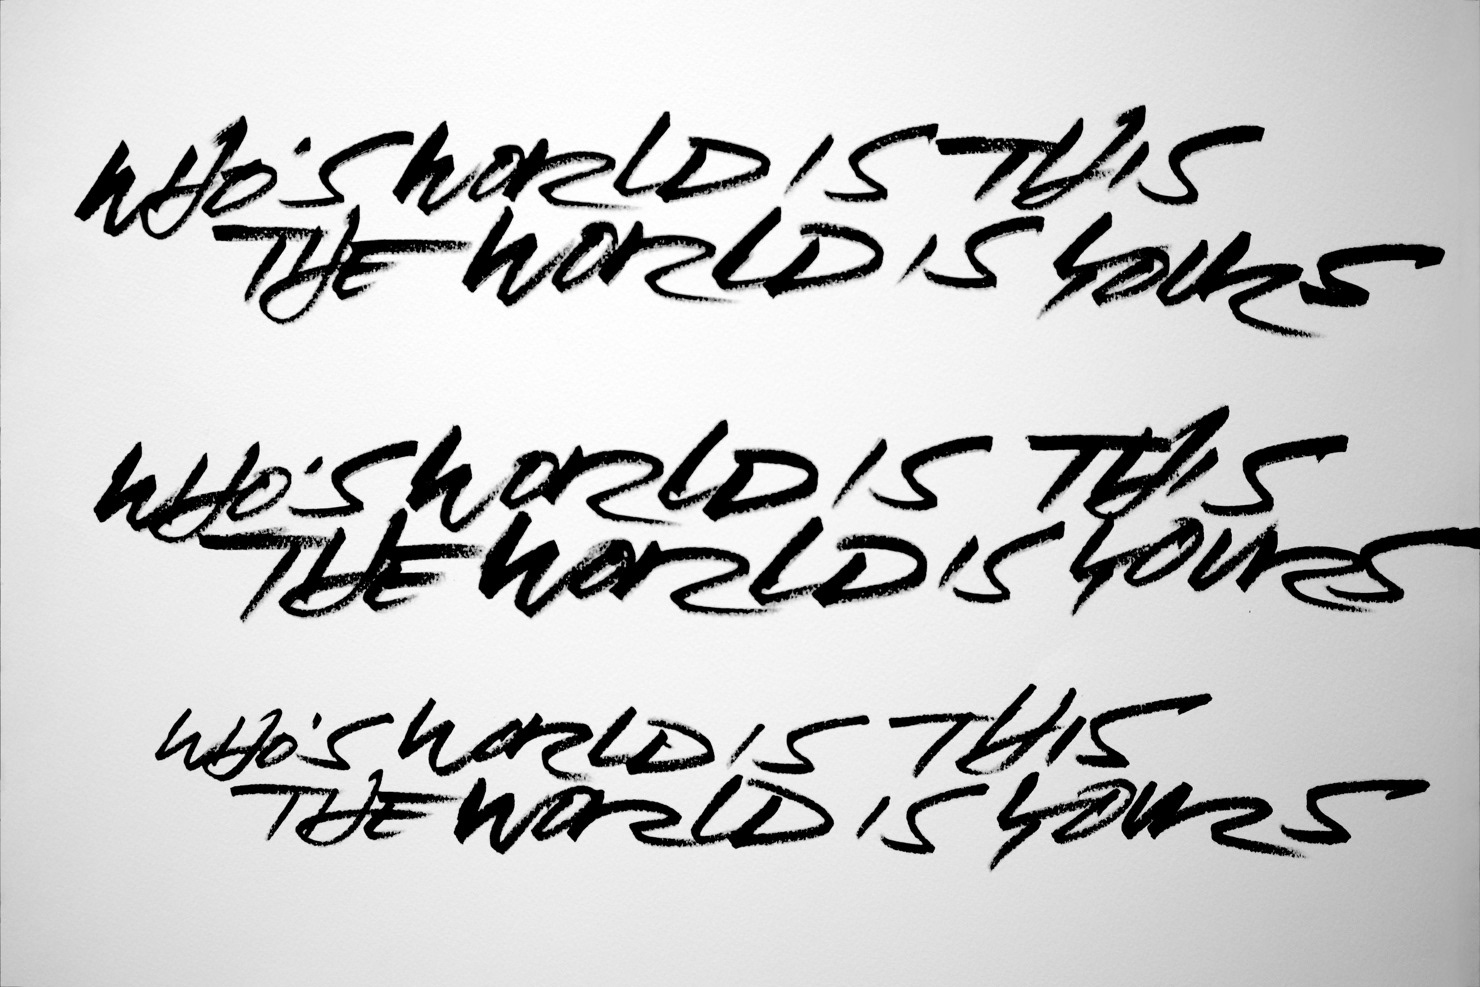 WHO'S WORLD IS THIS
THE WORLD IS YOURS
WHO'S WORLD IS THIS
THE WORLD IS YOURS
WHO'S WORLD IS THIS
THE WORLD IS YOURS